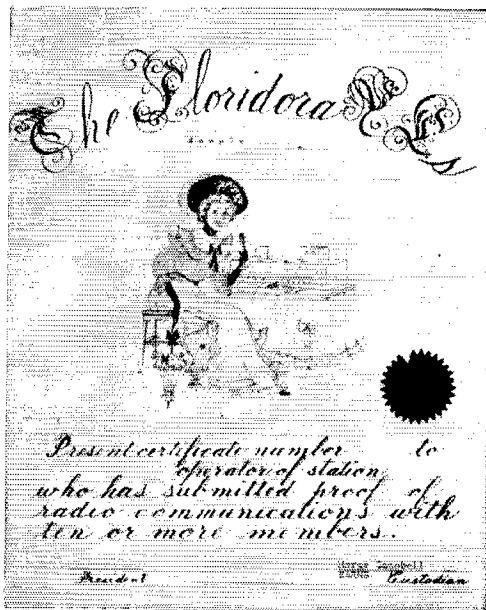 The Floridora YLs
Present certificate number to
operator of station
who has submitted proof of
radio communications with
ten or more members.
President Custodian